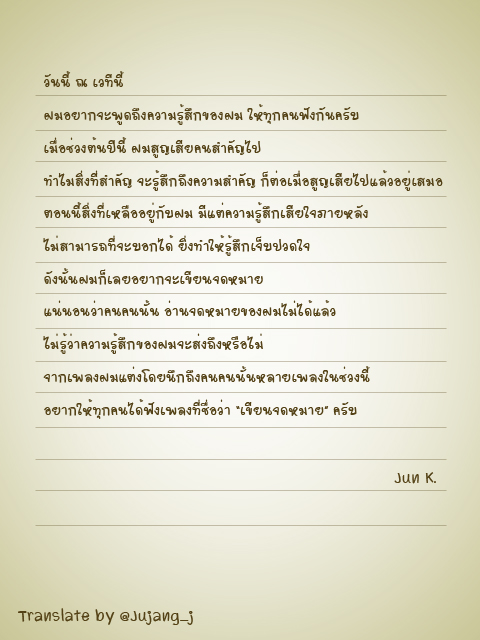 วันนี้ ณ เวทีนี้
ผมอยากจะพูดถึงความรู้สึกของผม ให้ทุกคนฟังกันครับ
เมื่อช่วงต้นปีนี้ ผมสูญเสียคนสำคัญไป
ทำไมสิ่งที่สำคัญ จะรู้สึกถึงความสำคัญ ก็ต่อเมื่อสูญเสียไปแล้วอยู่เสมอ
ตอนนี้สิ่งที่เหลืออยู่กับผม มีแต่ความรู้สึกเสียใจภายหลัง
ไม่สามารถที่จะบอกได้ ยิ่งทำให้รู้สึกเจ็บปวดใจ
ดังนั้นผมก็เลยอยากจะเขียนจดหมาย
แน่นอนว่าคนคนนั้น อ่านจดหมายของผมไม่ได้แล้ว
ไม่รู้ว่าความรู้สึกของผมจะส่งถึงหรือไม่
จากเพลงผมแต่งโดยนึกถึงคนคนนั้นหลายเพลงในช่วงนี้
อยากให้ทุกคนได้ฟังเพลงที่ชื่อว่า "เขียนจดหมาย" ครับ
Jun K.
Translate by @Jujang_j